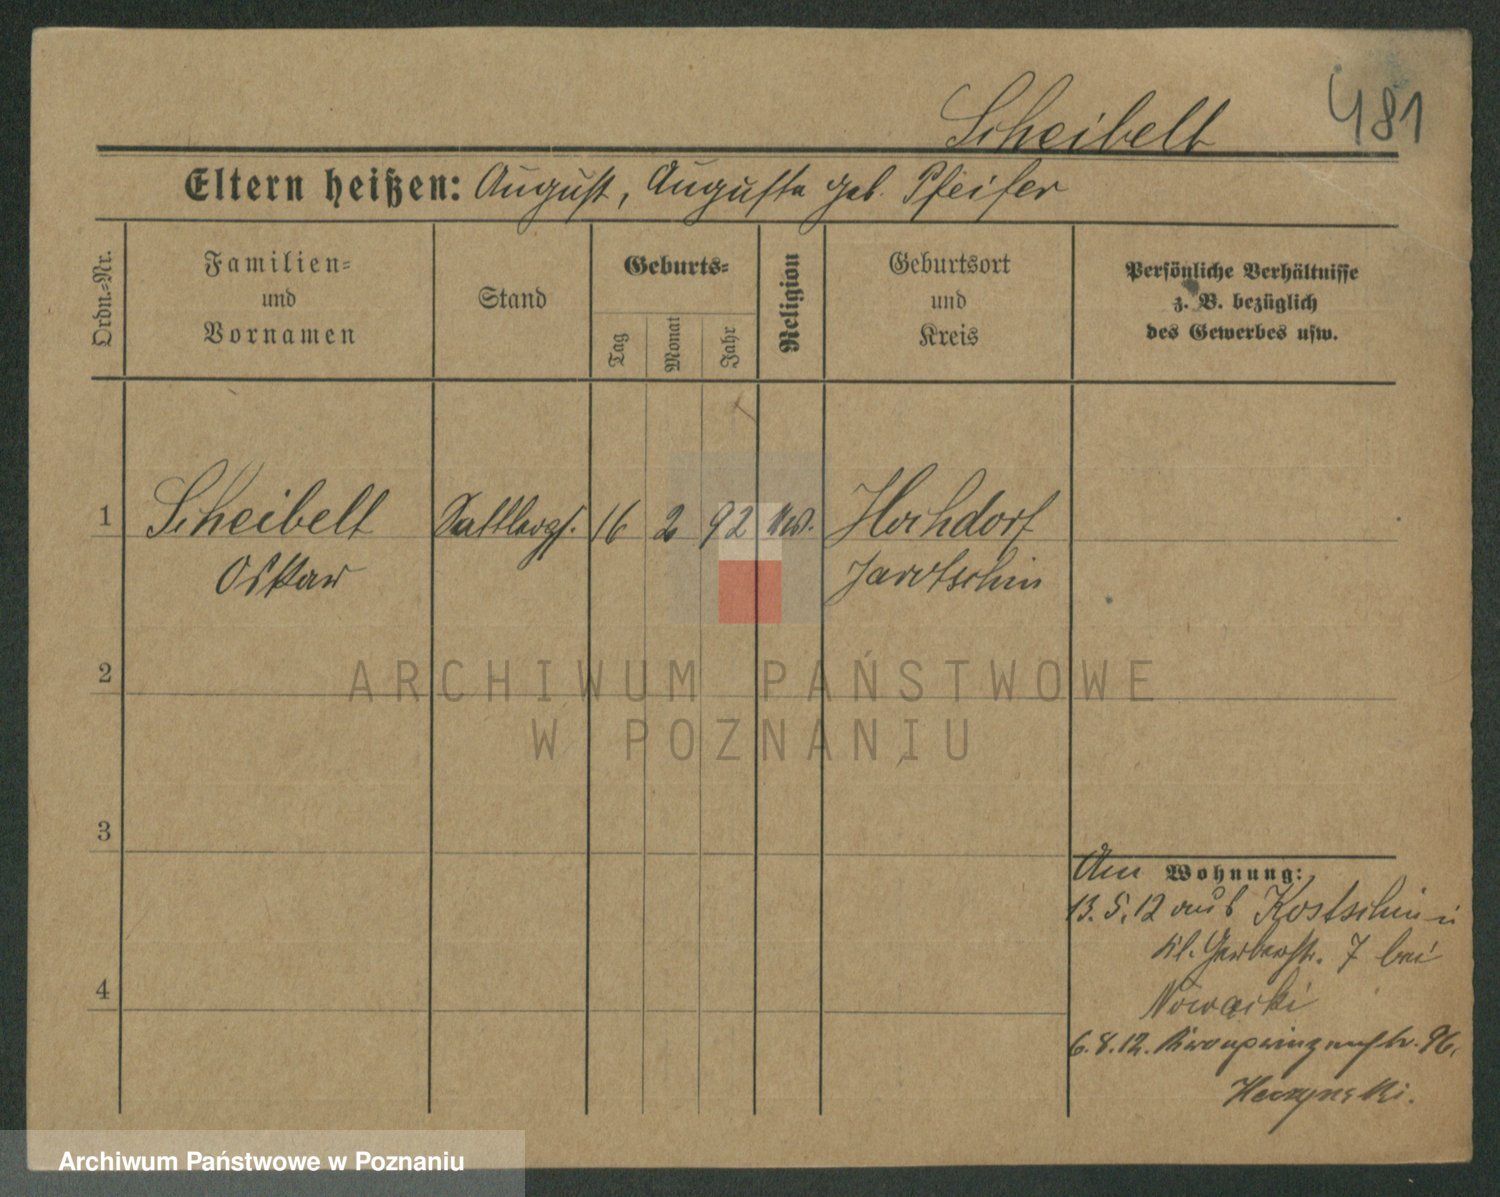 481
Scheibelt
Eltern heißen: August, Auguste geb. Pfeifer
Ordn.-Nr.
Familien-
und
Vornamen
Stand
Geburts-
Tag
Monat
Jahr
Religion
Geburtsort
und
Kreis
Persönliche Verhältnisse
z. B. bezüglich
des Gewerbes usw.
1 Scheibelt Sattlergs. 16 2 92 Hochdorf
Oskar Jarotschin
2
3
4
Wohnung:
13.5.12 aus Kostschin
kl. Gerberstr. 7 bei
Nowacki
6.8.12. Kronprinzenstr. 96.
ARCHIWUM PAŃSTWOWE
W POZNANIU
Archiwum Państwowe w Poznaniu